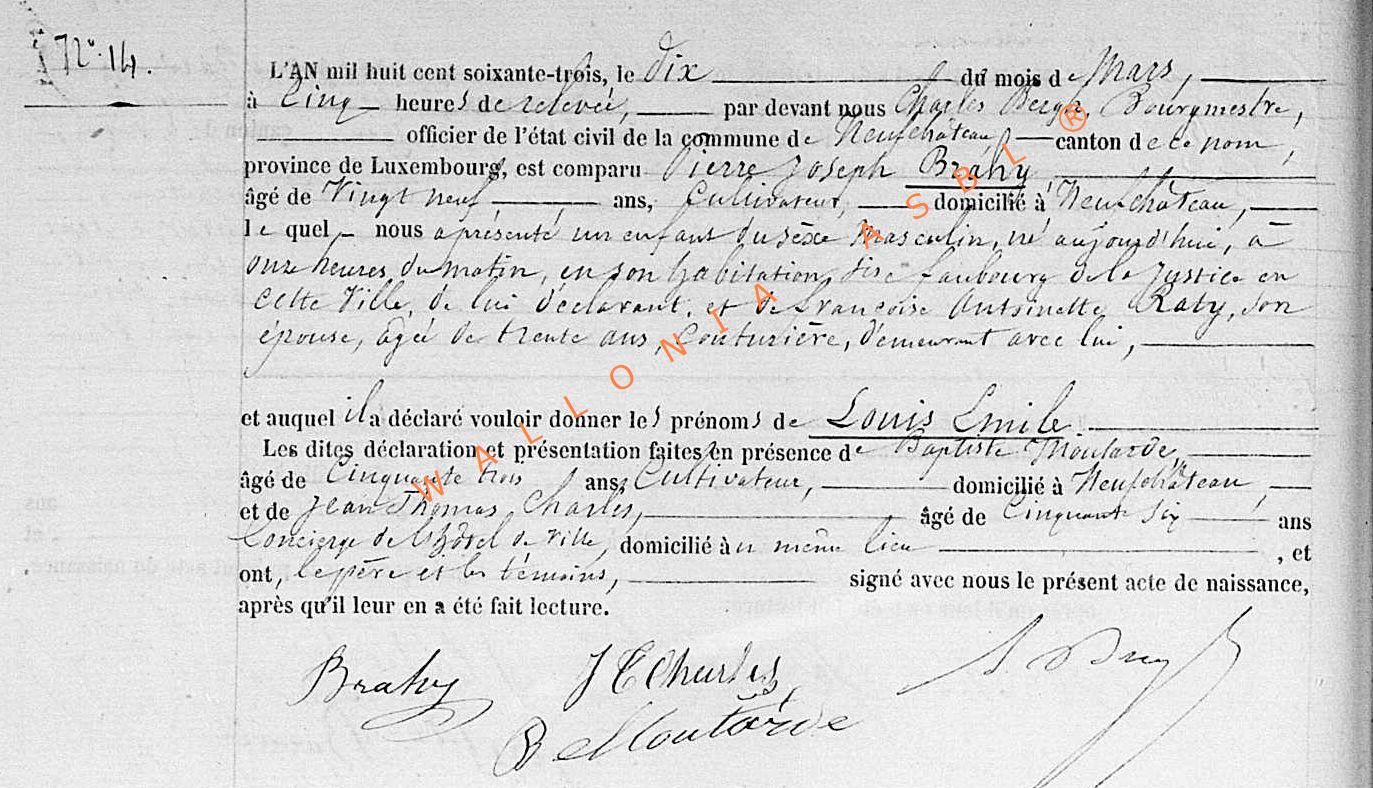 N° 14.
L'AN mil huit cent soixante-trois, le dix du mois de Mars,
à Cinq heures de relevée, par devant nous Charles Bourgmestre,
officier de l'état civil de la commune de Neufchâteau canton de ce nom,
province de Luxembourg, est comparu Pierre Joseph Brahy
âgé de Vingt neuf ans, Cultivateur, domicilié à Neufchâteau,
le quel nous a présenté un enfant du sexe Masculin, né aujourd'hui, à
onze heures du matin, en son habitation, sise faubourg de la Justice en
cette Ville, de lui déclarant, et de Françoise Antoinette Raty, son
épouse, agée de trente ans, Couturière, demeurant avec lui,
et auquel il a déclaré vouloir donner les prénoms de Louis Emile.
Les dites déclaration et présentation faites en présence de Baptiste Moutarde,
âgé de Cinquante trois ans, Cultivateur, domicilié à Neufchâteau,
et de Jean Thomas Charles, âgé de Cinquante Six ans
Concierge de l'hôtel de Ville, domicilié au même lieu , et
ont, le père et les témoins, signé avec nous le présent acte de naissance,
après qu'il leur en a été fait lecture.
Brahy
J T Charles
B Moutarde
WALLONIA ASBL ®